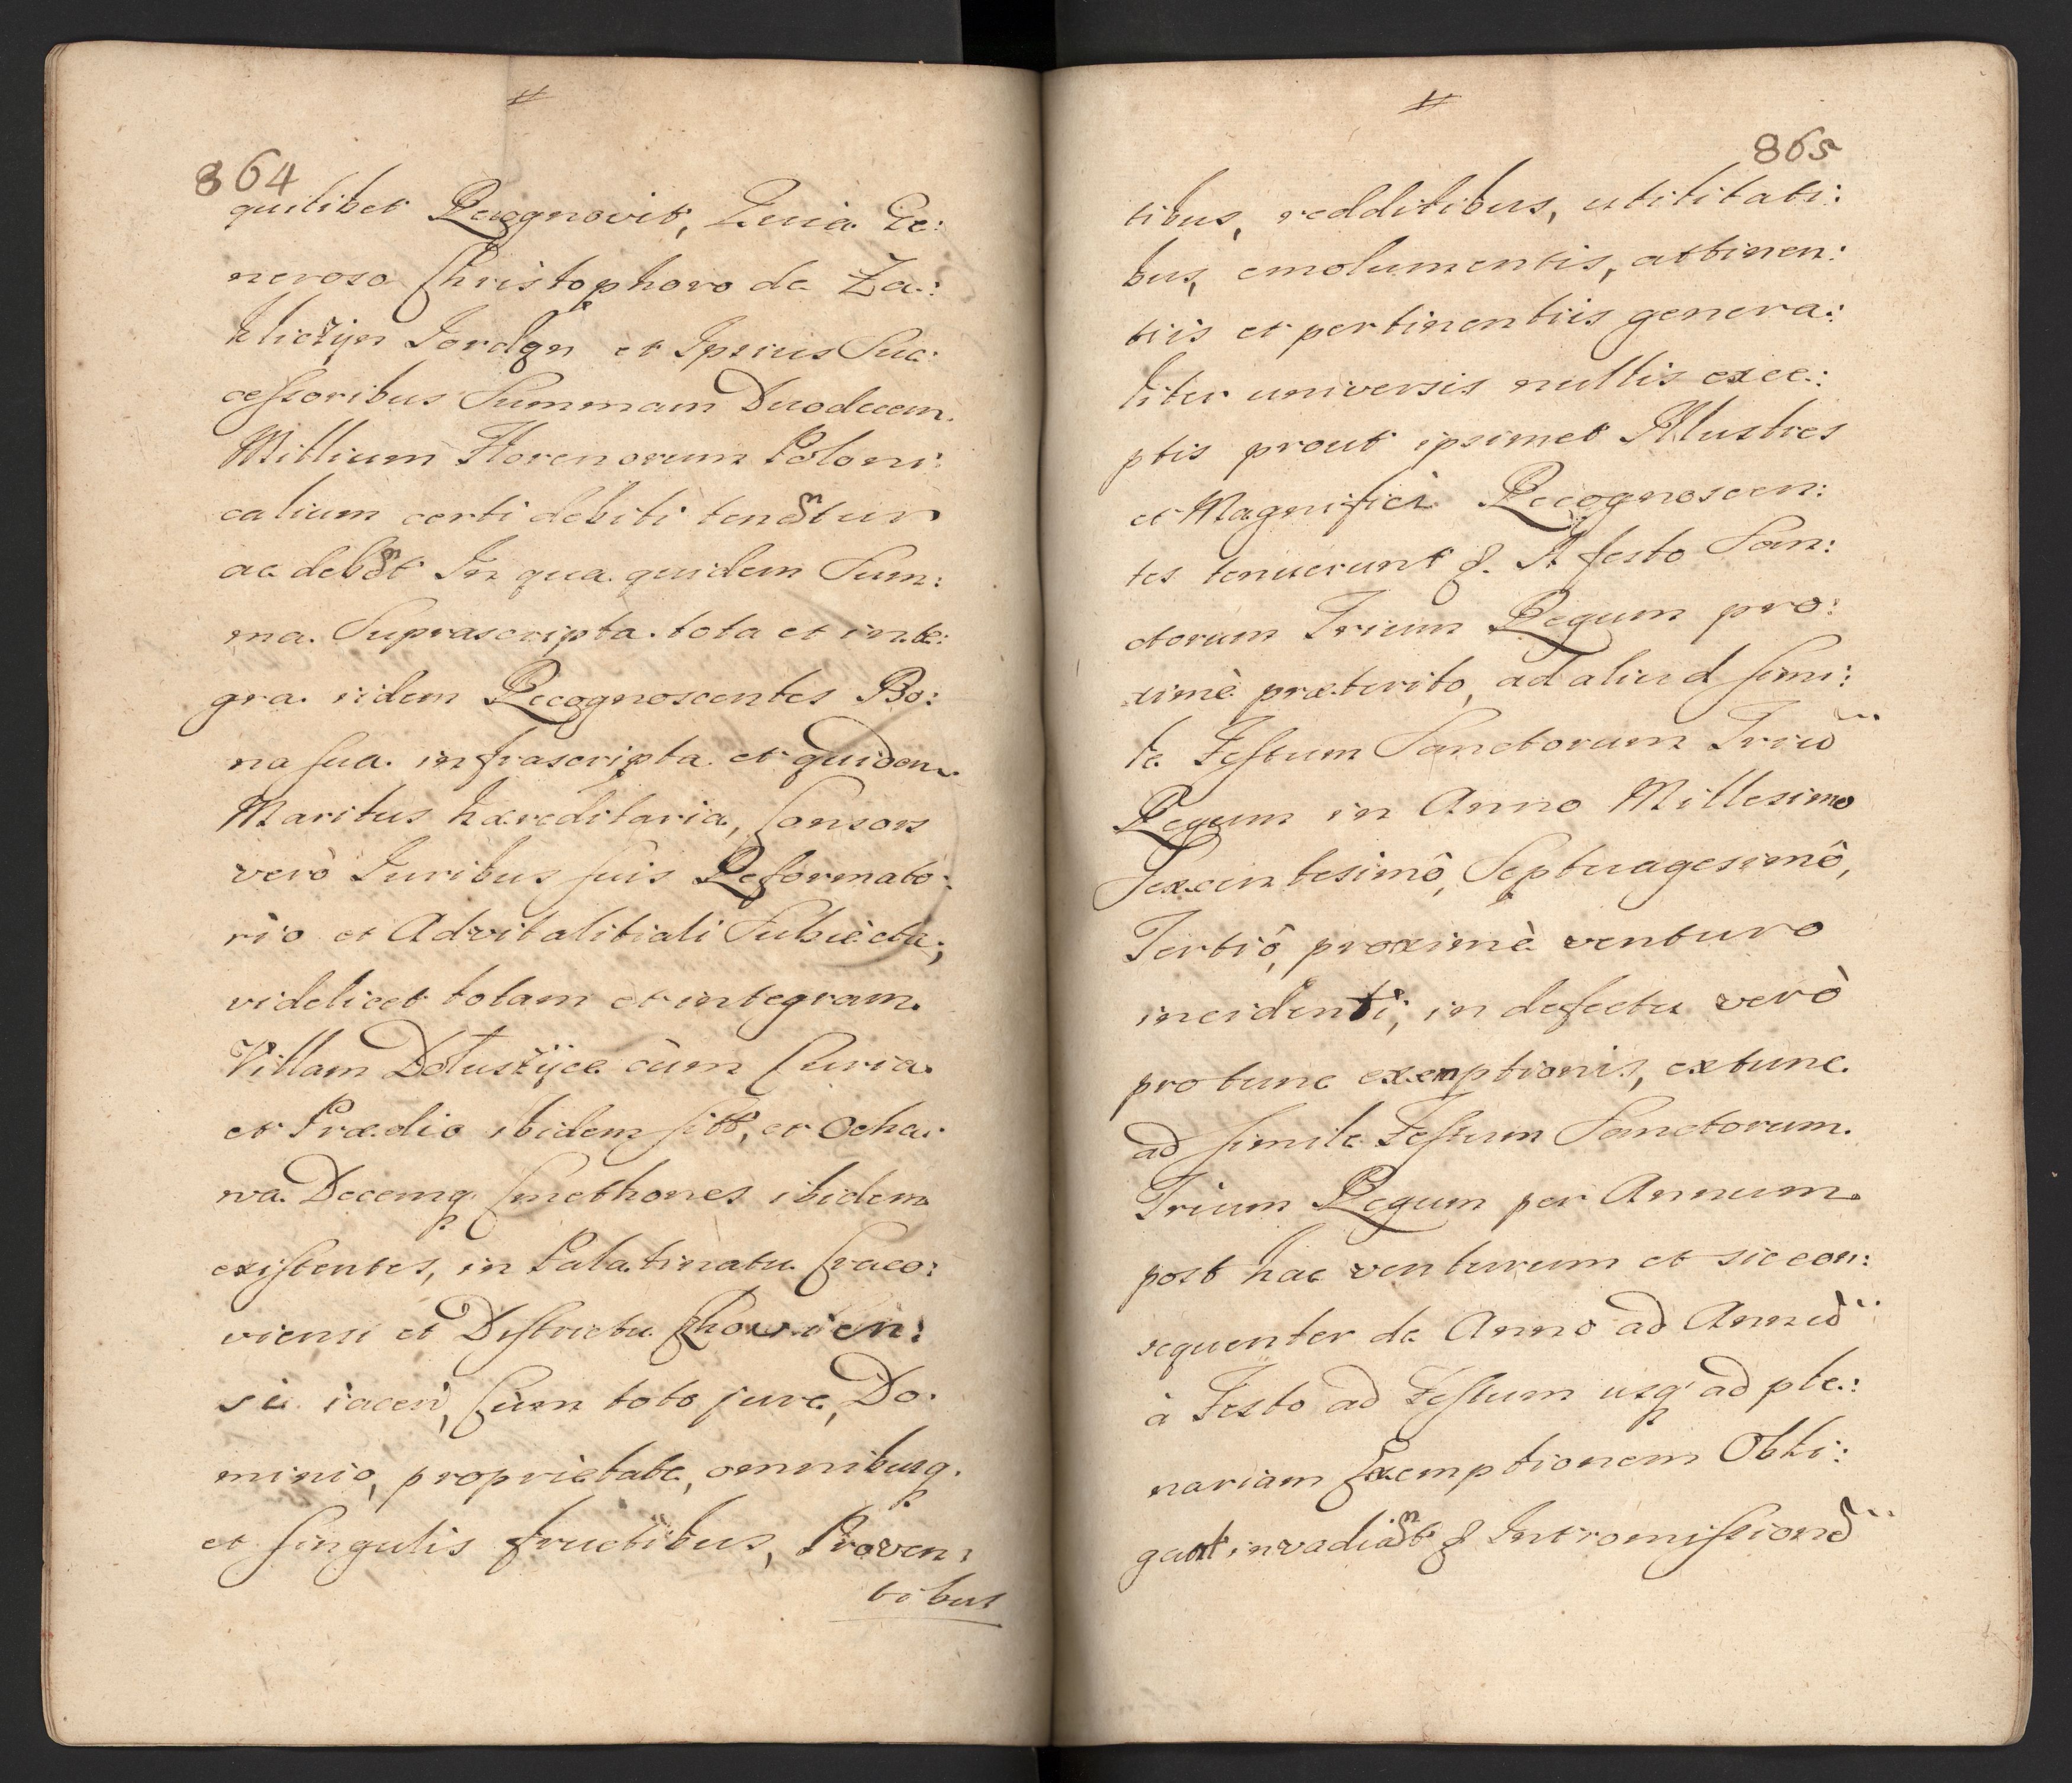 #
864
quilibet Recognovit, Quia Ge:
neroso Christophoro de Za:
kliczyn Jordan et Ipsius Suc:
cessoribus Summam Duodecem
Millium Florenorum Poloni:
calium certi debiti tenentur
ac debent In qua quidem Sum:
ma Suprascripta tota et inte:
gra iidem Recognoscentes Bo:
na sua infrascripta et quidem
Maritus haereditaria, Consors
verò Juribus suis Reformato:
rio et Advitalitiali Subiecta,
videlicet totam et integram
Villam Dołuszyce cum Curia
et Praedio ibidem sitt, et Octa:
va Decemq Cmethones ibidem
existentes, in Palatinatu Craco:
viensi et Districtu
si iacen, Cum toto jure, Do:
minio, proprietate, omnibusq
et singulis fructibus, Proven:
tibus
#
865
tibus, redditibus, utilitati:
bus, emolumentis, attinen:
tiis et pertinentiis genera:
liter universis nullis exce:
ptis prout ipsimet Illustres
et Magnifici Recognoscen:
tes tenuerunt &. A festo San:
ctorum Trium Regum pro:
ximè praeterito, ad aliud simi:
le Festum Sanctorum Triu
Regum in Anno Millesimo
Sexcentesimô, Septuagesimô,
Tertiô, proximè venturo
incidenti, in defectu verò
protunc exemptionis, extunc
ad simile Festum Sanctorum
Trium Regum per Annum
post hac venturum et sic con:
sequenter de Anno ad Annu
à Festo ad Festum usq ad ple:
nariam Exemptionem Obli:
gant invadiant & Intromission